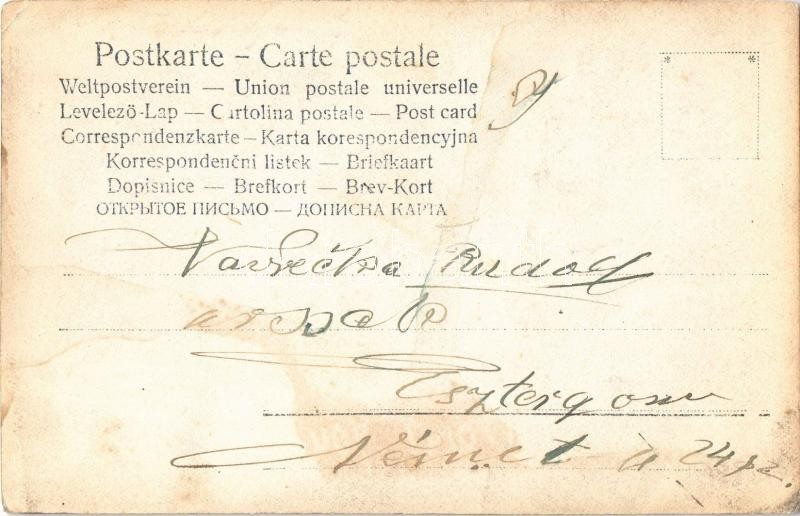 Postkarte – Carte postale
Weltpostverein — Union postale universelle
Levelező-Lap — Cartolina postale — Post card
Correspondenzkarte – Karta korespondencyjna
Korrespondenční listek — Briefkaart
Dopisnice — Brefkort — Brev-Kort
ОТКРЫТОЕ ПИСЬМО — ДОПИСНА КАРТА
Rudolf
Esztergom
Német u 24 sz.